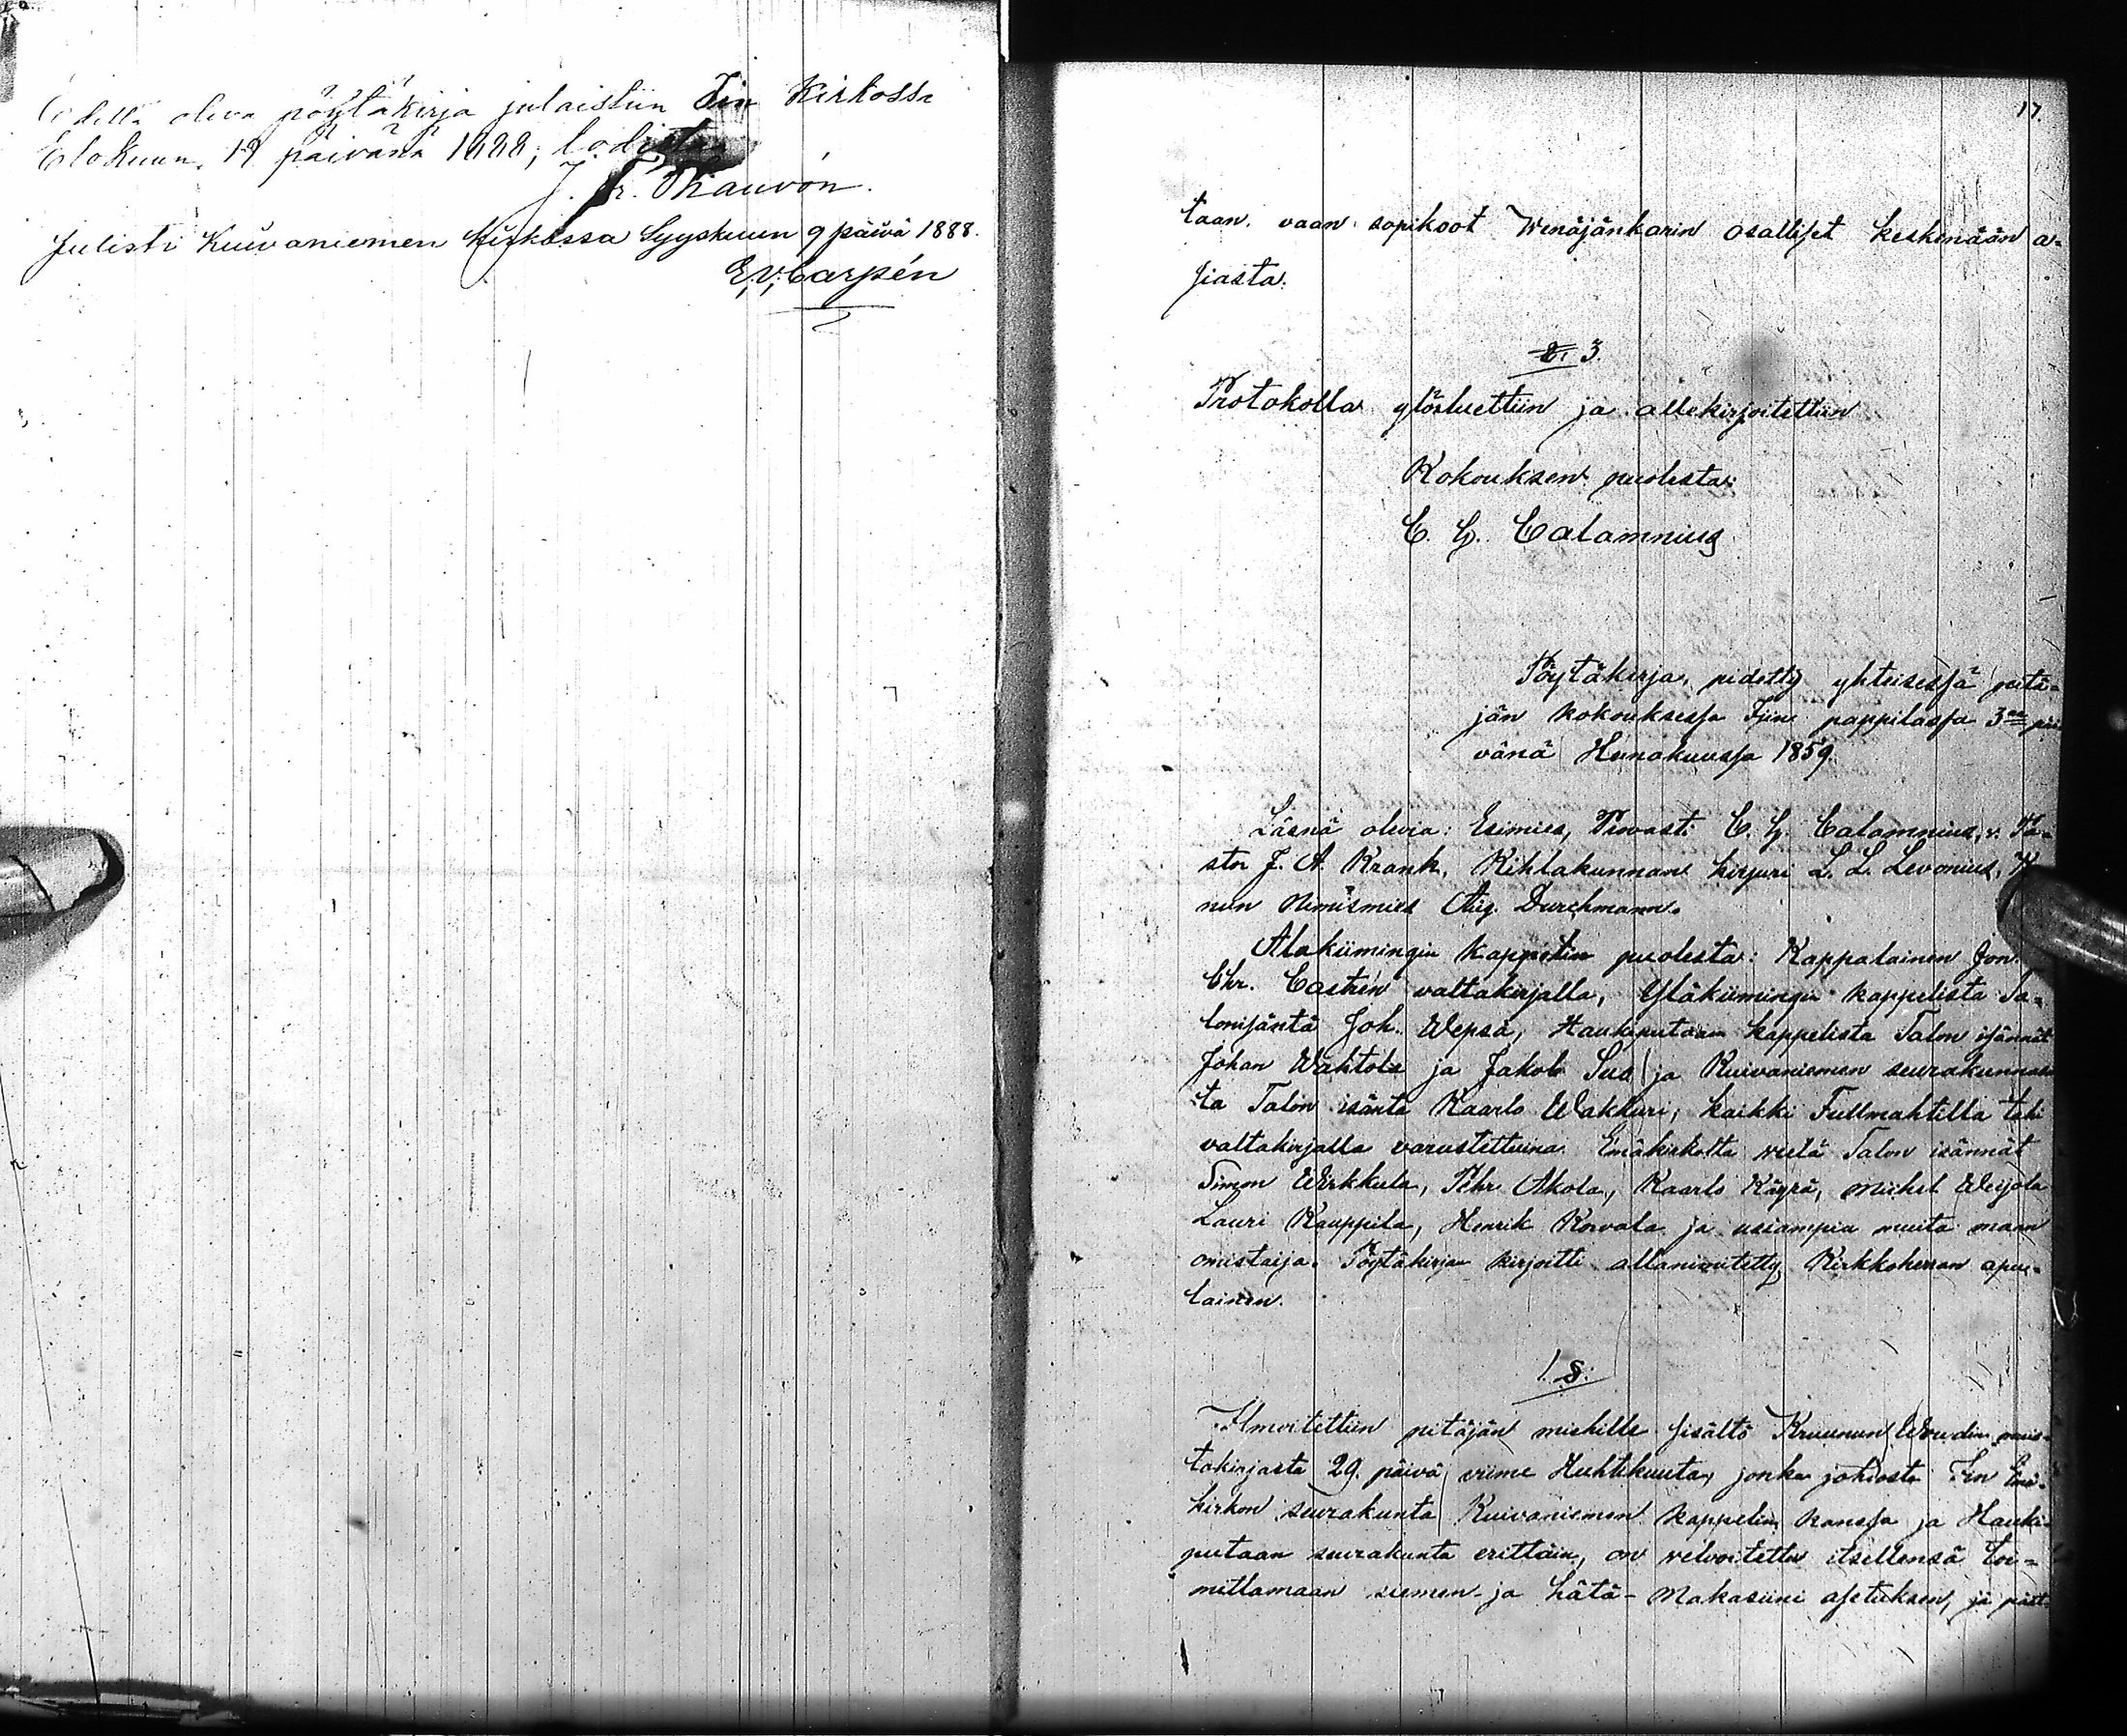 Edellä oleva pöytäkirja julaistiin Iin Kirkossa
Elokuun 19 päivänä 1888; todistaa
J. Fr. Thauvón.
Julisti Kuivaniemen kirkossa Syyskuun 9 päivä 1888.
E. V. Carpén
17.
taan. vaan sopikoot Wenäjänkarin osalliset keskenään a-
siasta.
3.
Protokolla ylösluettiin ja allekirjoitettiin
Kokouksen puolesta:
C. G. Calamnius
Pöytäkirja, pidetty yhteisessä pitä-
jän kokouksessa Ijin pappilassa 3na päi-
vänä Heinäkuussa 1859.
Läsnä olevia: Esimies, Prowasti C. G. Calamnius, v. Pa-
stor J. A. Krank, Kihlakunnan kirjuri L. L. Levonius,
nun Nimismies Aug. Durchmann.
Alakiimingin kappelin puolesta: Kappalainen Jon.
Chr. Castrén valtakirjalla, Yläkiimingin kappelista Ta-
lonisäntä Joh. Wepsä, Haukiputaan kappelista Talon isännät
Johan Wahtola ja Jakob Suo ja Kuivaniemen seurakunnas-
ta Talon isäntä Kaarlo Wakkuri, kaikki Fullmahtilla tahi
valtakirjalla varustettuina. Emäkirkolta vielä Talon isännät
Simon Wirkkula, Pehr Akola, Kaarlo Käyrä, Mickel Weijola
Lauri Kauppila, Henrik Korvala ja usiampia muita maan
omistajia. Pöytäkirjan kirjoitti allanimitetty Kirkkoherran apu-
lainen.
1. §.
Ilmoitettiin pitäjän miehille sisältö Kruunun Woudin muis-
takirjasta 29. päivä viime Huhtikuuta, jonka johdosta Iin Emä-
kirkon seurakunta Kuivaniemen kappelin kanssa ja Hauki-
putaan seurakunta erittäin, on velvoitettu itsellensä toi-
mittamaan siemen- ja hätä- Makasiini asetuksen, ja